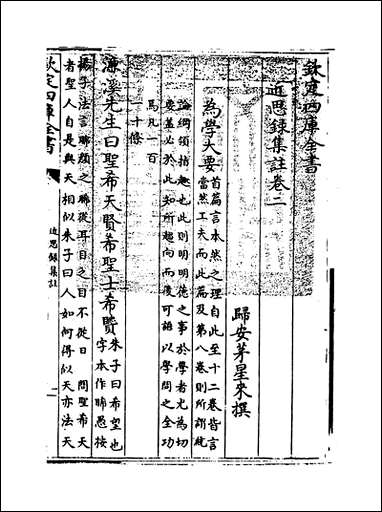 欽定四庫全書
近思錄集註卷二
歸安茅星來撰
為學大要
首篇言本然之理自此至十二卷皆言
當然工夫而此篇及第八卷則所謂統
論綱領指趣也此則明明德之事於學者尤為切
要蓋必於此知所趨向而後可語以學問之全功
焉凡一百
一十條
濂溪先生曰聖希天賢希聖士希賢
朱子曰希望也
字本作睎愚按
揚子法言睎顏之睎從耳目之目不從日 問聖希天
者聖人自是與天相似朱子曰人如何得似天亦法天
欽定四庫全書
近思錄集註
一